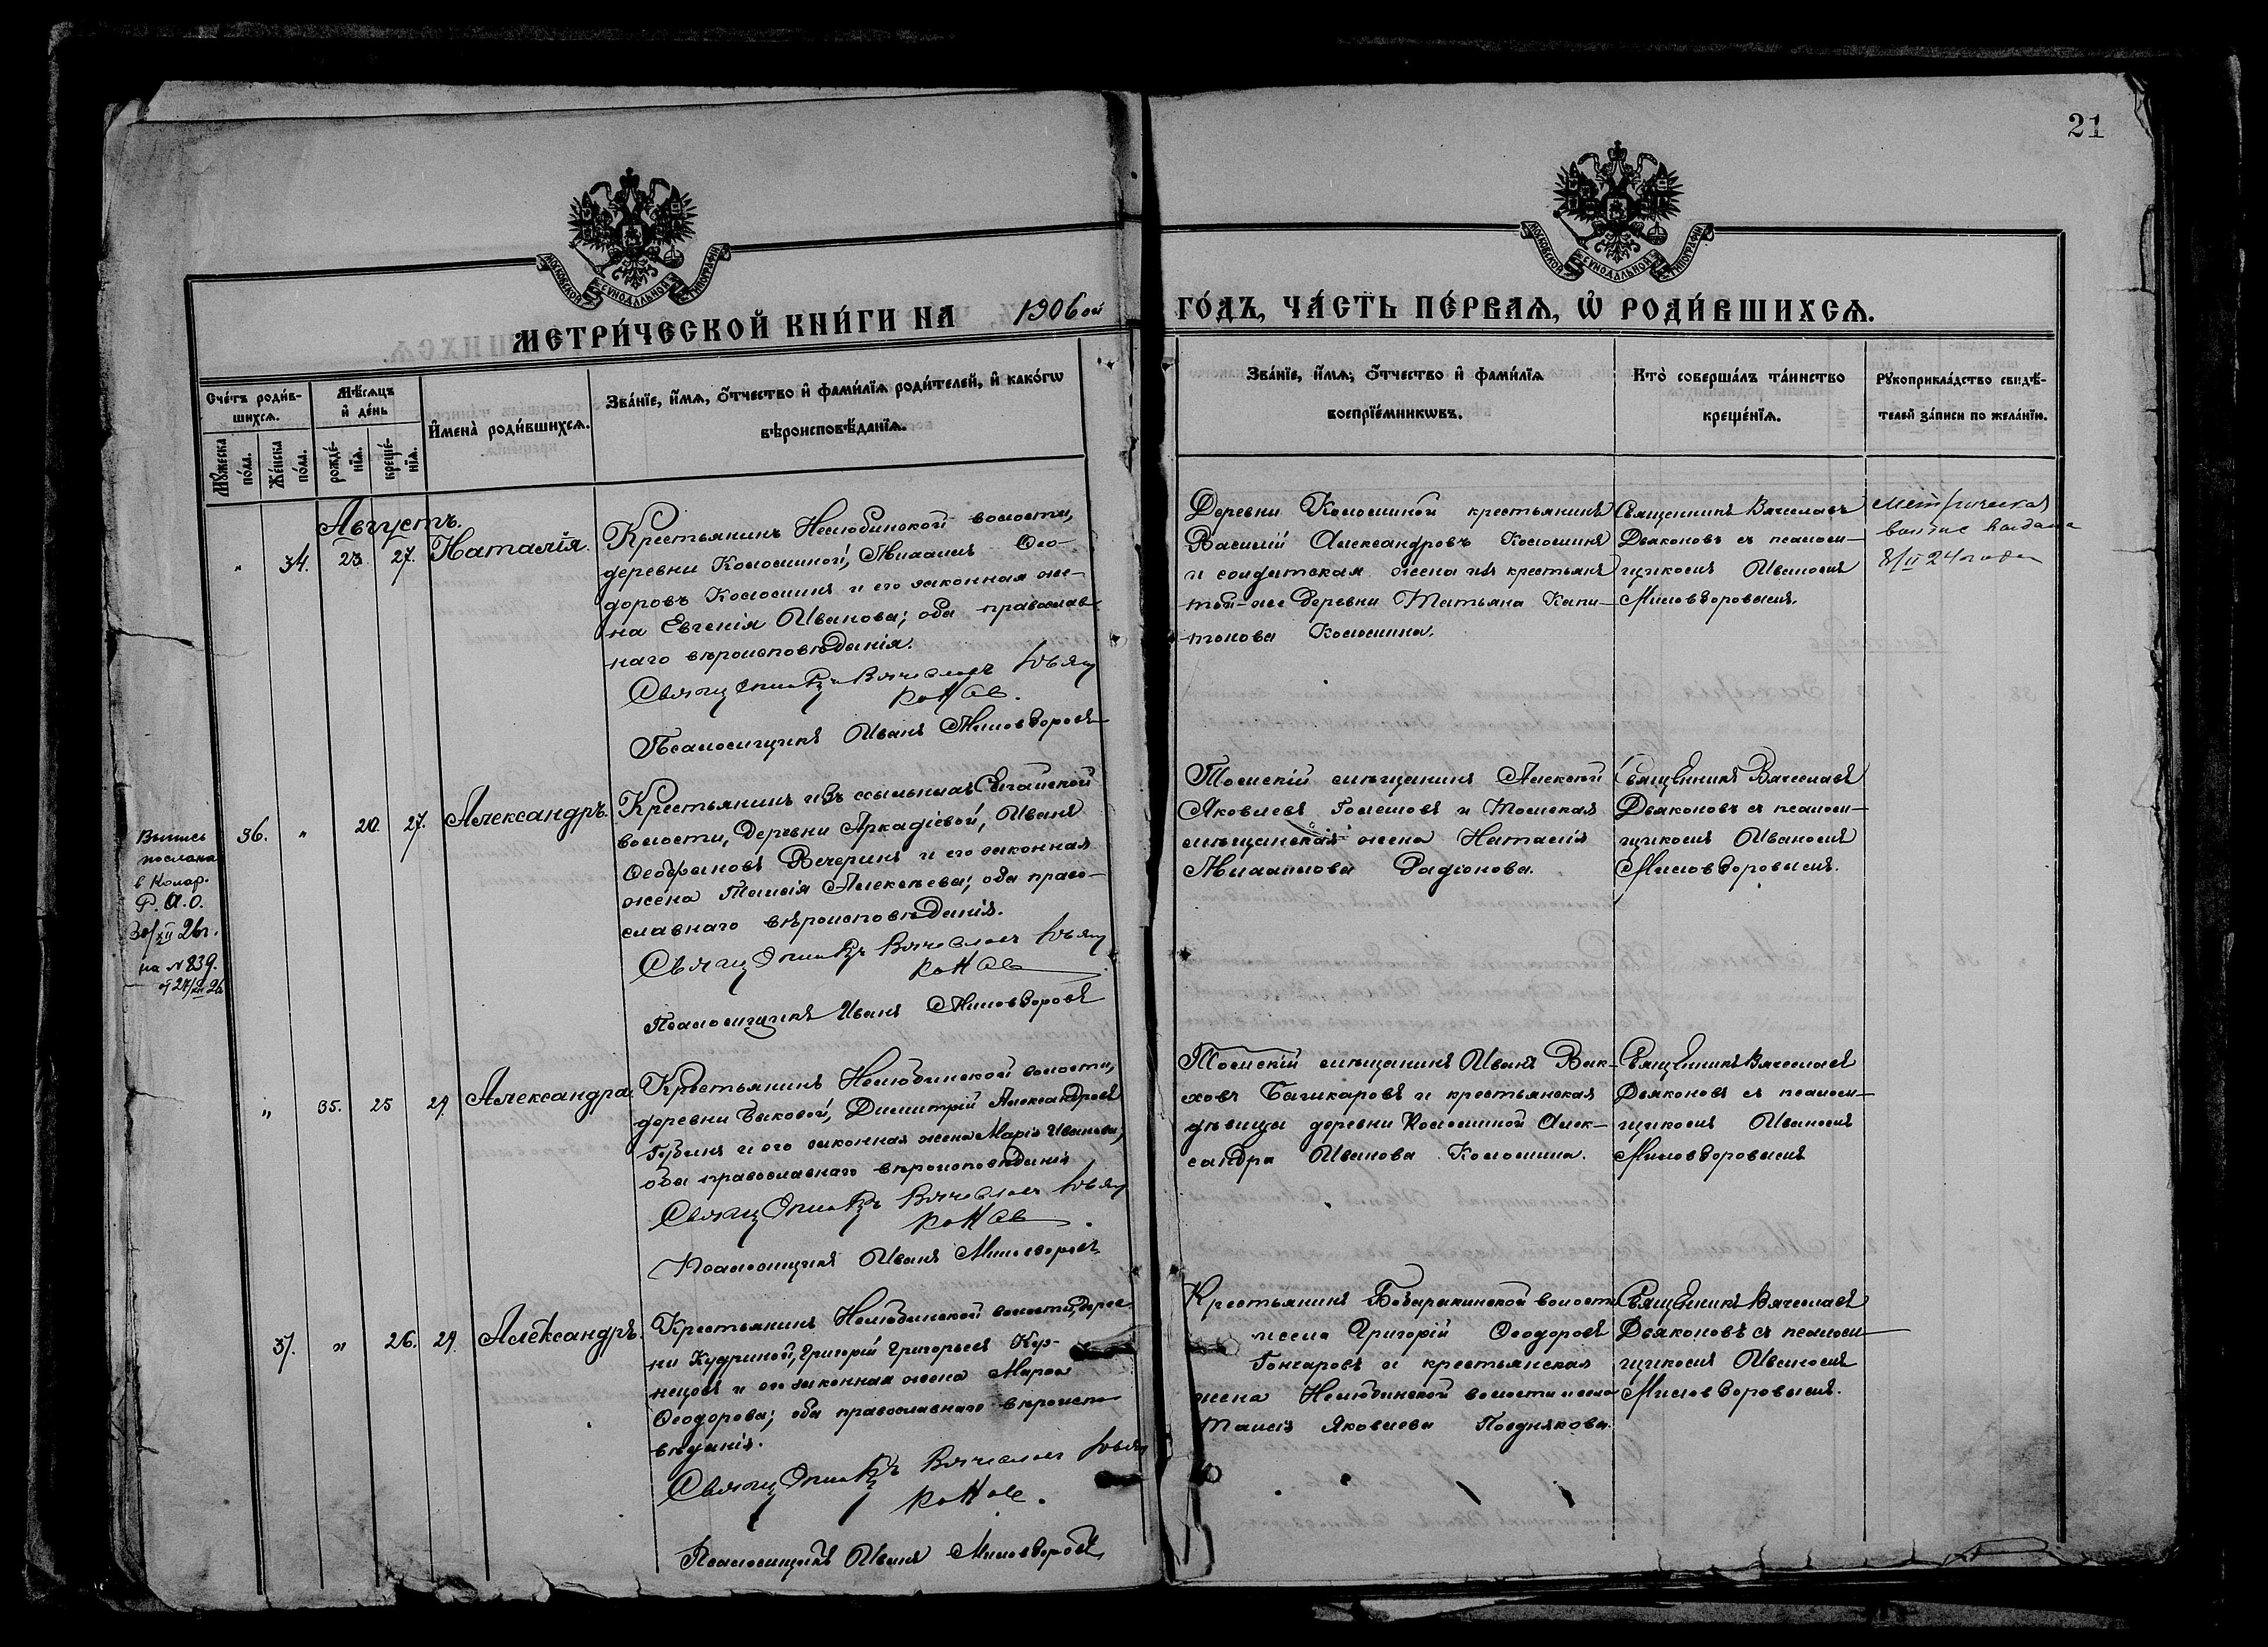 21
МОСКОВСКОЙ СУНОДАЛЬНОЙ ТИПОГРАФІИ
МОСКОВСКОЙ СУНОДАЛЬНОЙ ТИПОГРАФІИ
МЕТРИ́ЧЕСКОЙ КНИ́ГИ НА 1906ой
ГО́ДЪ, ЧА́СТЬ ПЕ́РВАѦ, Ѡ҆ РОДИ́ВШИХСѦ.
Сче́тъ роди́в-
шихсѧ.
Мѣ́сѧцъ
и҆ де́нь
Мꙋ́жеска
по́ла.
Же́нска
по́ла.
рожде́-
нїѧ.
креще́-
нїѧ.
И҆мена̀ роди́вшихсѧ.
Зва́нїе, и҆́мѧ, ѻ҆́тчество и҆ фами́лїѧ роди́телей, и҆ како́гѡ
вѣроисповѣ́данїѧ.
Зва́нїе, и҆́мѧ, ѻ҆́тчество и҆ фами́лїѧ
воспрїе́мникѡвъ.
Кто̀ соверша́лъ та́инство
креще́нїѧ.
Рꙋкоприкла́дство свидѣ́-
телей за́писи по жела́нїю.
Августъ.
" 34. 23. 27. Наталія.
Крестьянинъ Нелюбинской волости,
деревни Коломиной, Михаилъ Ѳео-
доровъ Коломинъ и его законная же-
на Евгенія Иванова; оба православ-
наго вѣроисповѣданія.
Священникъ Вячеславъ Дьяконовъ.
Псаломщикъ Иванъ Миловзоровъ
Деревни Коломиной крестьянинъ
Василій Александровъ Коломинъ
и солдатская жена изъ крестьянъ
той-же деревни Татьяна Капи-
тонова Коломина.
Священникъ Вячеславъ
Дьяконовъ съ псалом-
щикомъ Иваномъ
Миловзоровымъ.
Метрическая
выпис выдана
8/II 24 года
Выпись
послана
в Колар.
Р.А.О.
30/XII 26г.
на №839.
от 27/XII 26
36. " 20. 27. Александръ.
Крестьянинъ изъ ссыльныхъ
волости, деревни Аркадіевой, Иванъ
Ѳеофановъ Вечеринъ и его законная
жена Таисія Алексѣева; оба право-
славнаго вѣроисповѣданія.
Священникъ Вячеславъ Дьяконовъ
Псаломщикъ Иванъ Миловзоровъ
Томскій мѣщанинъ Алексѣй
Яковлевъ Голешовъ и Томская
мѣщанская жена Наталія
Михаилова Радіонова.
Священникъ Вячеславъ
Дьяконовъ съ псалом-
щикомъ Иваномъ
Миловзоровымъ.
" 35. 25 27. Александра.
Крестьянинъ Нелюбинской волости,
деревни Быковой, Димитрій Александровъ
Губинъ и его законная жена Марія Иванова,
оба православнаго вѣроисповѣданія
Священникъ Вячеславъ Дьяконовъ.
Псаломщикъ Иванъ Миловзоровъ
Томскій мѣщанинъ Иванъ
Башкаровъ и крестьянская
дѣвица деревни Коломиной Алек-
сандра Иванова Коломина.
Священникъ Вячеславъ
Дьяконовъ съ псалом-
щикомъ Иваномъ
Миловзоровымъ
37. " 26. 27. Александръ.
Крестьянинъ Нелюбинской волости, дерев-
ни Кудриной, Григорій Григорьевъ Куз-
нецовъ и его законная жена Марѳа
Ѳеодорова; оба православнаго вѣроиспо-
вѣданія.
Священникъ Вячеславъ Дьяконовъ.
Псаломщикъ Иванъ Миловзоровъ
Крестьянинъ волости
и села Григорій Ѳеодоровъ
Гончаровъ и крестьянская
жена Нелюбинской волости и села
Таисія Яковлева Позднякова.
Священникъ Вячеславъ
Дьяконовъ съ псалом-
щикомъ Иваномъ
Миловзоровымъ.